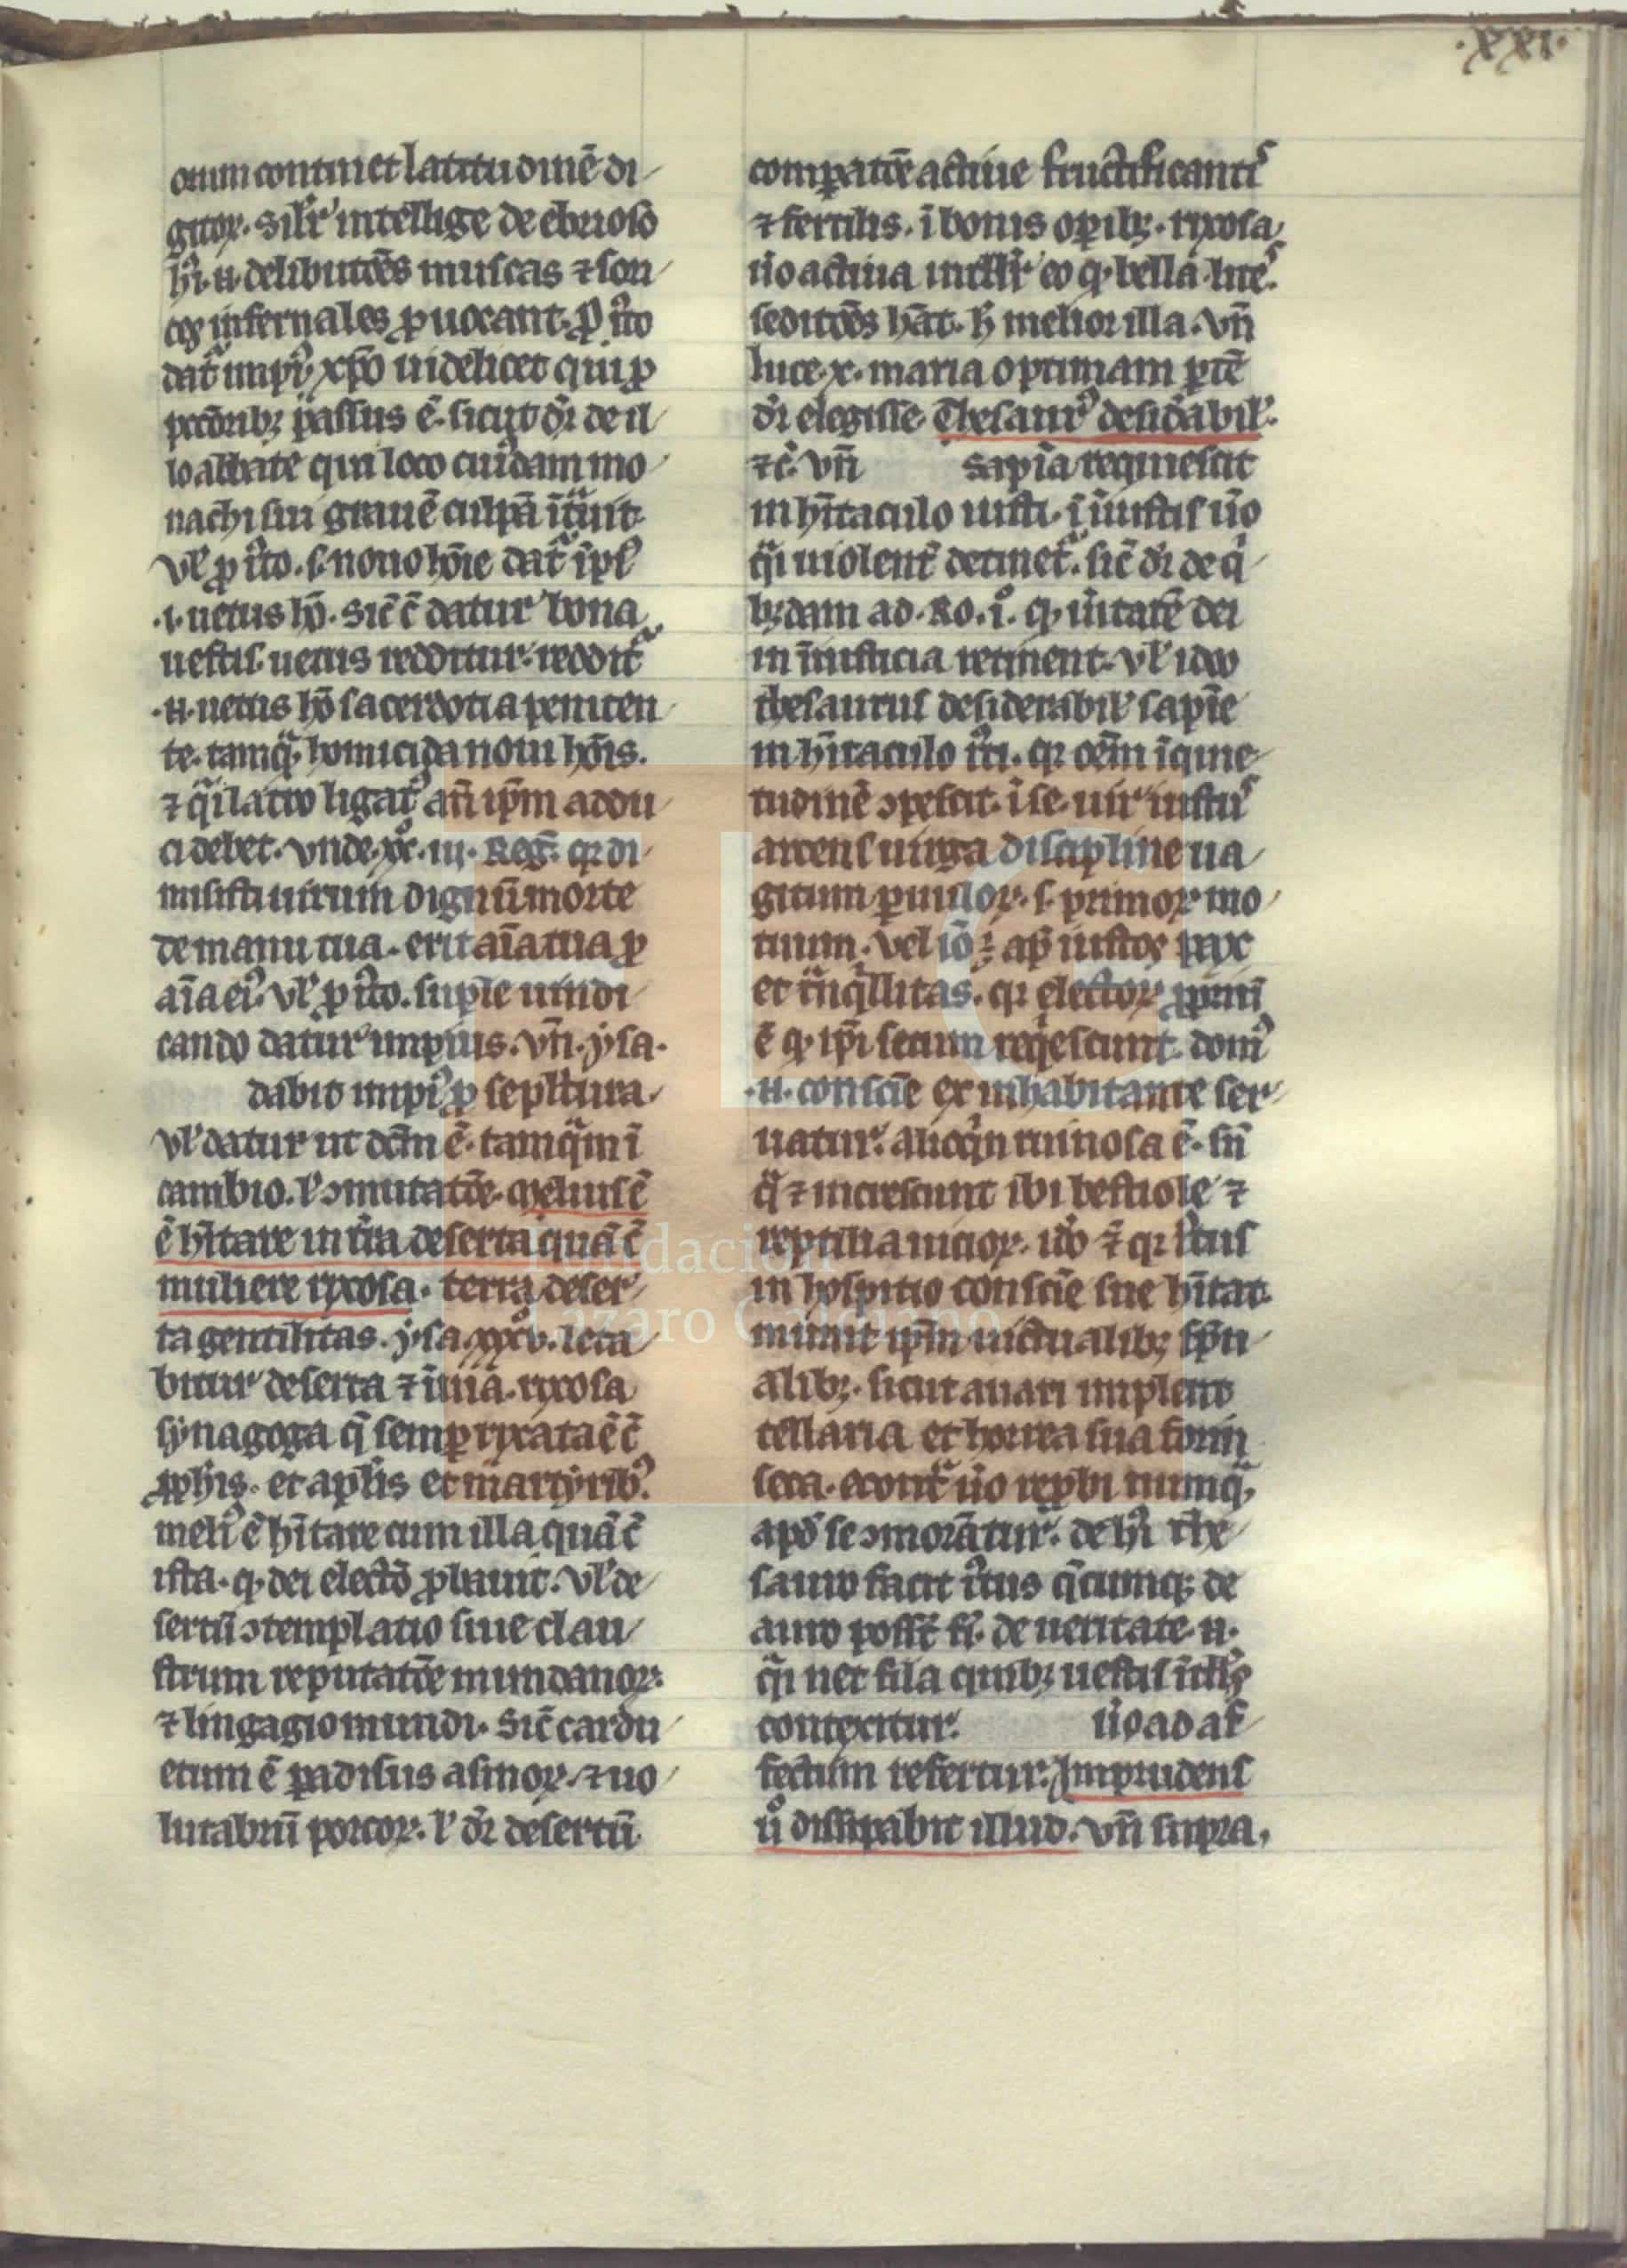 .xxi.
otium continet latitudinē di
gitoꝝ. Silr̃ intellige de ebrioso
hi .n. delibutōes muscas ⁊ son
ces infernales ꝓuocant. ꝓ iꝰto
dat̃ impiꝰ xp̄o uidelicet qui ꝓ
pctōribꝫ passus ē. sicut dr̃ de il
lo abbate qui loco cuiꝰdam mo
nachi sui grauē culpā
Vl̓ ꝓ iꝰto .s. nouo hōie dat̃
.i. uetus hō. Sic̄ datur bona
uestis. uetus redditur. reddit̃
.n. uetus hō sacerdoti a peniten
te. tamqᷓ homicida noui hōis.
ligatꝰ an̄ ip̄m addu
ci debet. Vnde xx. iii. Reg. qꝛ di
misisti uirum dignū morte
de manu tua. erit aīa tua ꝓ
aīa eiꝰ. Vl̓ ꝓ iꝰto. suple uindi
cando datur impius. Vn̄. ysa.
dabit impiꝰ ꝓ sepl̓tura.
Vl̓ datur ut dcm̄ ē. tamqᷓm ī
cambio. l̓ ↄmutatōe. Meliusē
ē hītare in tr̄a deserta quā c̄
muliere rixosa. terra deser
ta gentilitas. ysa. xxxv. leta
bitur deserta ⁊ īuia. rixosa
synagoga q̄ semꝑ rixata ē c̄
ꝓphīs. et apl̓is et martyribꝰ.
meliꝰ ē hītare cum illa quā c̄
ista. qꝫ dei electō ꝓbauit. Vl̓ de
sertū ↄtemplatio siue clau
strum reputatōe mundanoꝝ.
⁊ lingagio mundi. Sic̄ cardu
etum ē ꝑadisus asinoꝝ. ⁊ uo
lutabrū porcoꝝ. l̓ dr̃ desertū
comꝑatōe actiue fructificantiꝰ
⁊ fertilis. ī bonis oꝑibꝫ. rixosa
uͦo actiua intellr̃ eo qꝫ bella. lites.
seditōes hāt. hꝫ melior illa. Vn̄
luce. x. maria optimam ꝑtē
dr̃ elegisse. Thesaurꝰ desidabil̓.
⁊c̄. Vn̄ sapīa requiescit
in hītaculo iusti. ī iniustis uͦo
qᷓi uiolent̃ detinet̃. sic̄ dr̃ de qͥ
bꝫdam ad. Ro. i. qꝫ uītatē dei
in iniusticia retinent. Vl̓ ideo
thesaurus desiderabil̓ sapīe
in hītaculo iꝰti. qꝛ oēm īquie
tudinē ↄpescit. ī se. uir iustꝰ
arcens uirga discipline ua
gitum ꝑuuloꝝ .s. primoꝝ mo
tuum. Vel iō. apᷘ iustos pax
et tᷓnqͥllitas. qꝛ electoꝝ ꝓpriū
ē qꝫ ip̄i secum reqͥescunt. domꝰ
.n. consciē ex inhabitante ser
uatur. alioqͥn ruinosa ē.
qᷓ ⁊ increscunt ibi bestiole ⁊
reptilia uicioꝝ. ideo ⁊ qꝛ iꝰtus
in hospitio consciē sue hītat.
munit ip̄m uictualibꝫ sp̄u
alibꝫ. sicut auari implent
cellaria et horrea sua forin
seca. econtᷓ uͦo repbi numqᷓ
apᷘ se ↄmorātur. de hͦ the
sauro facit iꝰtus qᷓcumqꝫ de
auro possꝫ fi. de ueritate .n.
qᷓi net fila quibꝫ uestis
contexitur. uͦo ad af
fectum refertur. Imprudens
uͦ dissipabit illud. Vn̄ supra.
Fundación
Lázaro Galdiano